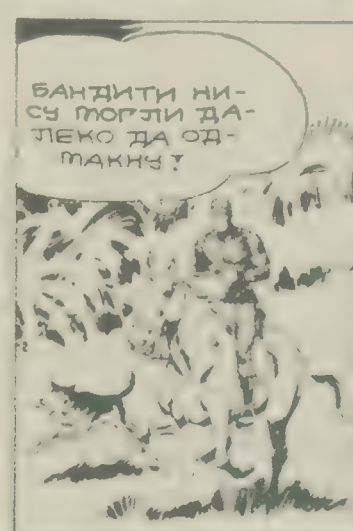 БАНДИТИ НИ-
СУ МОГЛИ ДА-
ЛЕКО ДА ОД-
МАКНУ!